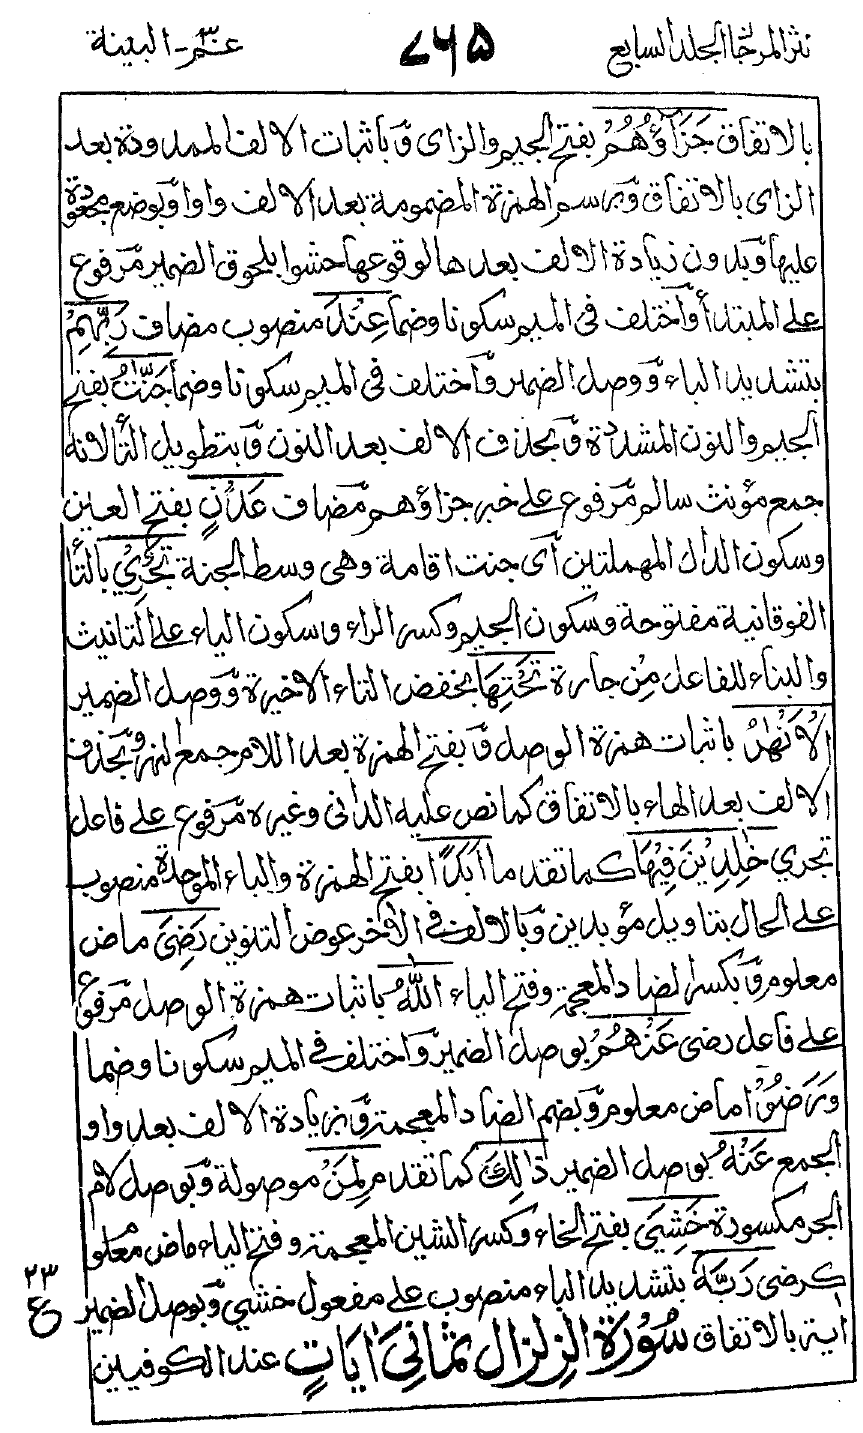 نثر المرجان المجلد السابع ٧٦٥ عم۳ - البينة
بالاتفاق جَزَآؤُهُمْ بفتح الجيم والزاى وَبأثبات الالف الممدودة بعد
الزاى بالاتفاق وَبرسم الهمزة المضمومة بعد الالف واوا وَبوضع مجعودة
عليها وَبدون زيادة الالف بعدها لوقوعها حشوا بلحوق الضمير مَرفوع
على المبتدأ وَاختلف فى الميم سكونا وضما عِنْدَ منصوب مضاف رَبِّهِمْ
بتشديد الباء وَوصل الضمير وَاختلف فى الميم سكونا وضما جَنّٰتُ بفتح
الجيم والنون المشددة وَبحذف الالف بعد النون وَبتطويل التأ لانه
جمع مؤنث سالم مَرفوع على خبر جزاؤهم مَضاف عَدْنٍ بفتح العين
وسكون الدال المهملتين أى جنت اقامة وهى وسط الجنة تَجْرِيْ بالتأ
الفوقانية مفتوحة وسكون الجيم وكسر الراء وسكون الياء على التانيث
والبناء للفاعل مِنْ جارة تَحْتِهَا بخفض التاء الاخيرة وَوصل الضمير
الْاَنْهٰرُ باثبات همزة الوصل وَبفتح الهمزة بعد اللام جمع النهر وَبحذف
الالف بعد الهاء بالاتفاق كما نص عليه الدانى وغيره مَرفوع على فاعل
تجري خٰلِدِيْنَ فِيْهَا كما تقدم اَبَدًا بفتح الهمزة والباء الموحدة منصوب
على الحال بتاويل مؤبدين وَبالالف فى الأخر عوض التنوين رَضِيَ ماض
معلوم وَبكسر الضاد المعجمة وفتح الياء اللّٰهُ باثبات همزة الوصل مَرفوع
على فاعل رضى عَنْهُمْ بوصل الضمير وَاختلف فى الميم سكونا وضما
وَرَضُوْا ماض معلوم وَبضم الضاد المعجمة وَبزيادة الالف بعد واو
الجمع عَنْهُ بوصل الضمير ذٰلِكَ كما تقدم لِمَنْ موصولة وَبوصل لام
الجر مكسورة خَشِيَ بفتح الخاء وكسر الشين المعجمة وفتح الياء ماض معلو
كرضى رَبَّهٗ بتشديد الباء منصوب على مفعول خشي وَبوصل الضمير
٢٣
ع
اية بالاتفاق سُوْرَةُ الزِلزال ثَمَانِىَ اٰيَاتٍ عند الكوفيين